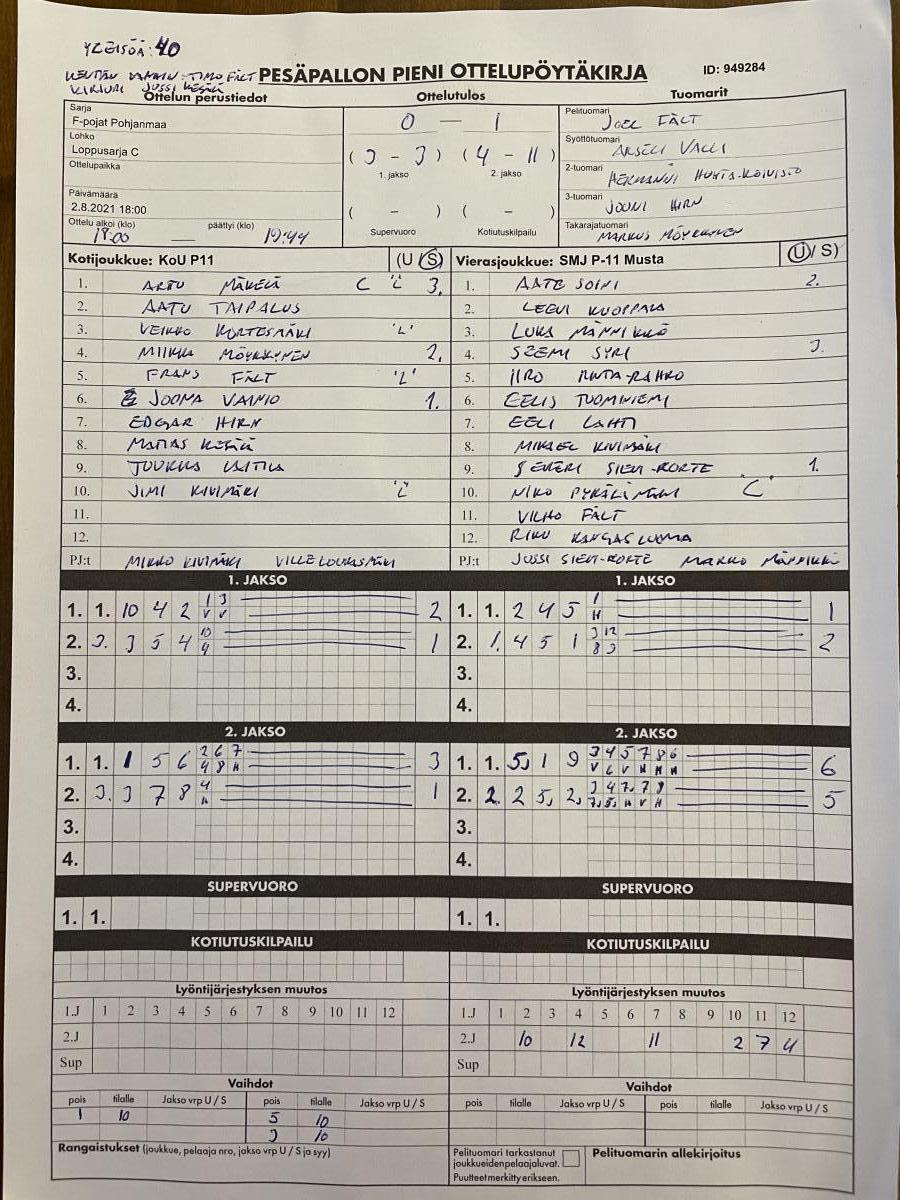 YLEISÖÄ: 40
PESÄPALLON PIENI OTTELUPÖYTÄKIRJA
ID: 949284
KENTÄN TIMO FÄLT
KIRJURI JUSSI KESKÄ
Ottelun perustiedot
Ottelutulos
Tuomarit
Sarja
F-pojat Pohjanmaa
Lohko
Loppusarja C
Ottelupaikka
Päivämäärä
2.8.2021 18:00
Ottelu alkoi (klo) päättyi (klo)
18:00 — 19:44
0 — 1
(3 - 3) (4 - 11)
1. jakso 2. jakso
( - ) ( - )
Supervuoro Kotiutuskilpailu
Pelituomari JOEL FÄLT
Syöttötuomari AKSELI VALLI
2-tuomari HERMANNI HUHTA-KOIVISTO
3-tuomari JOONI HIRN
Takarajatuomari MARKUS MÖYKKYNEN
Kotijoukkue: KoU P11 (U / S)
1. ARTU MÄKELÄ C 'L' 3.
2. AATU TAIPALUS
3. VEIKKO KORTESMÄKI 'L'
4. MIIKKA MÖYKKYNEN 2.
5. FRANS FÄLT 'L'
6. JOONA VAINIO 1.
7. EDGAR HIRN
8. MATIAS KESKÄ
9. JUUKKA LAITILA
10. JIMI KIVIMÄKI 'L'
11.
12.
PJ:t MIKKO KIVIMÄKI VILLE LOUKASMÄKI
Vierasjoukkue: SMJ P-11 Musta (U / S)
1. AATE SOINI 2.
2. LEEVI KUOPPALA
3. LUKA MÄNNIKKÖ
4. SZEMI SYRI 3.
5. IIRO RINTA-RAHKO
6. EELIS TUOMINIEMI
7. EELI LAHTI
8. MIKAEL KIVIMÄKI
9. SEVERI SIEVI-KORTE 1.
10. NIKO PYKÄLÄMÄKI C
11. VILHO FÄLT
12. RIKU KANGASLUOMA
PJ:t JUSSI SIEVI-KORTE MARKO MÄNNIKKÖ
1. JAKSO
1. 1. 10 4 2 1 3 2
V V
2. 3. 3 5 4 10 1
9
3.
4.
1. JAKSO
1. 1. 2 4 5 1 1
H
2. 1. 4 5 1 3 12 2
8 9
3.
4.
2. JAKSO
1. 1. 1 5 6 2 6 7 3
4 8 H
2. 3. 3 7 8 4 1
H
3.
4.
2. JAKSO
1. 1. 5, 1 9 3 4 5 7 8 6 6
V L V H H H
2. 2. 2 5, 2, 3 4 7, 7 8 5
7, 5, H V H
3.
4.
SUPERVUORO
1. 1.
SUPERVUORO
1. 1.
KOTIUTUSKILPAILU
KOTIUTUSKILPAILU
Lyöntijärjestyksen muutos
1.J 1 2 3 4 5 6 7 8 9 10 11 12
2.J
Sup
Lyöntijärjestyksen muutos
1.J 1 2 3 4 5 6 7 8 9 10 11 12
2.J 10 12 11 2 7 4
Sup
Vaihdot
pois tilalle Jakso vrp U / S pois tilalle Jakso vrp U / S
1 10 5 10
3 10
Vaihdot
pois tilalle Jakso vrp U / S pois tilalle Jakso vrp U / S
Rangaistukset (joukkue, pelaaja nro, jakso vrp U / S ja syy)
Pelituomari tarkastanut
joukkueidenpelaajaluvat.
Puutteet merkitty erikseen.
Pelituomarin allekirjoitus